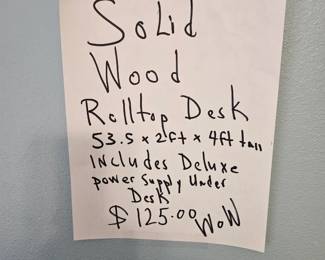 Solid
Wood
Rolltop Desk
53.5 x 2ft x 4ft tall
Includes Deluxe
power Supply Under
Desk
$125.00 WoW